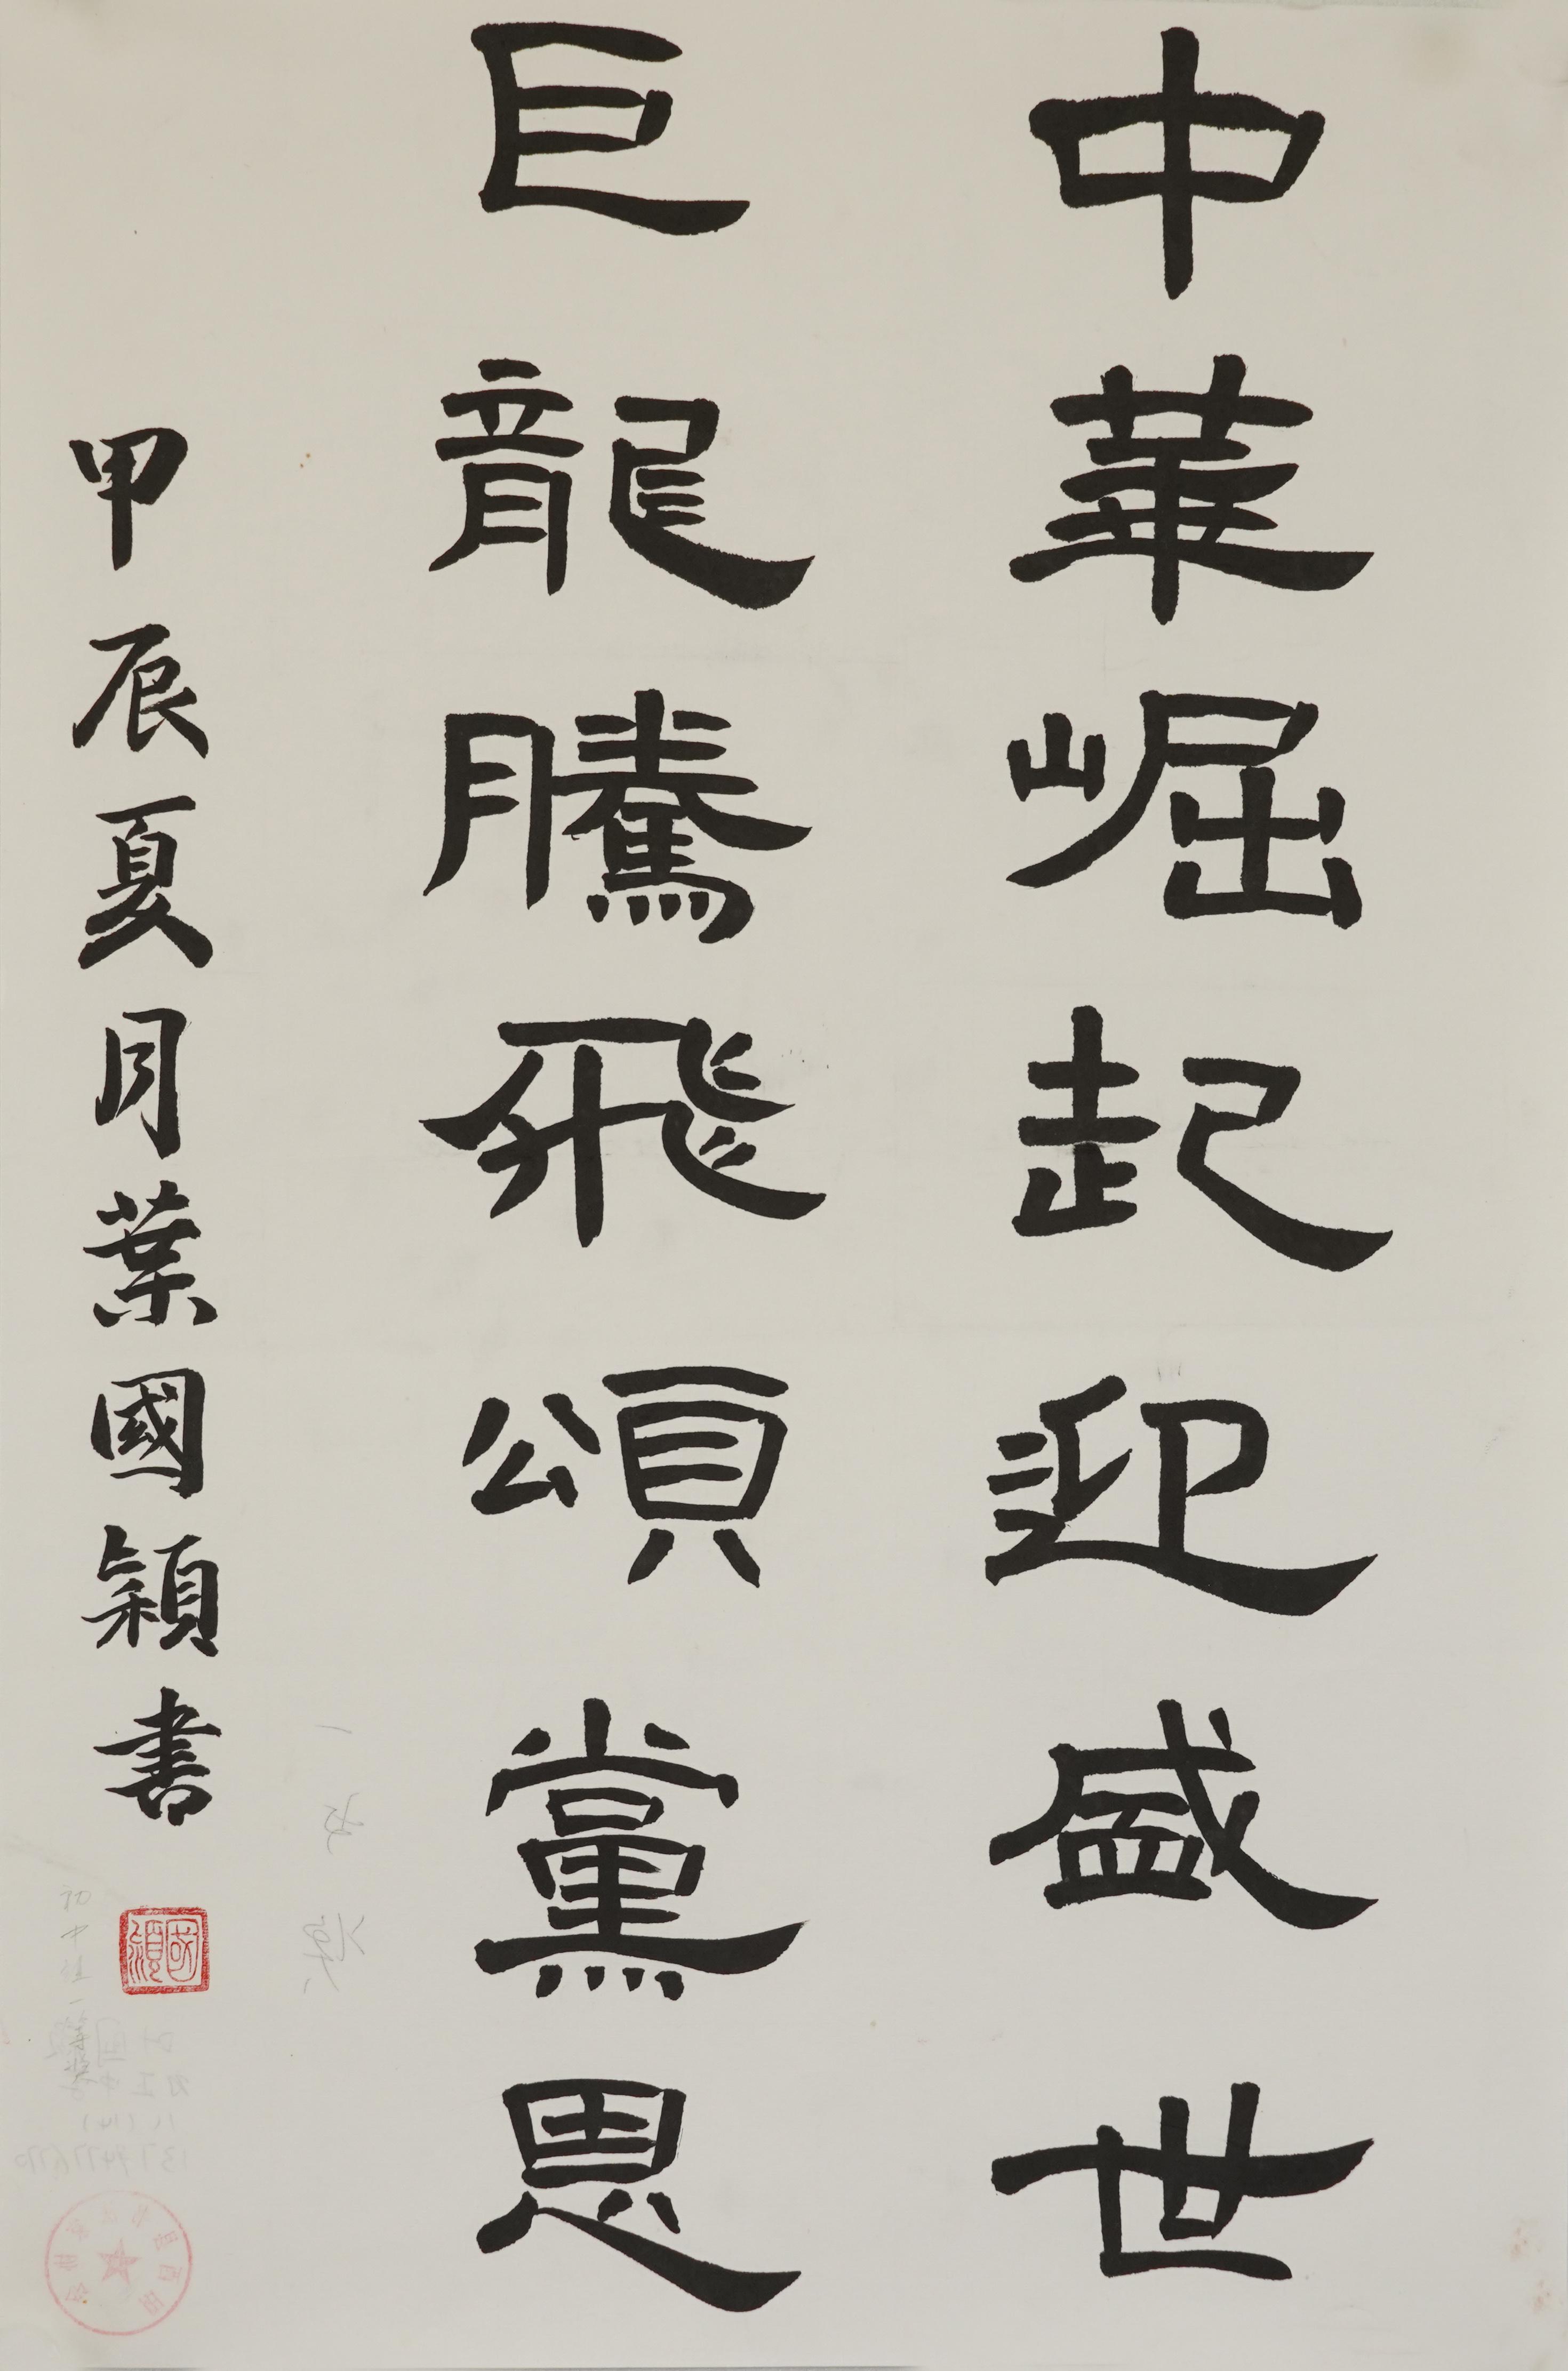 中華崛起迎盛世
巨龍騰飛頌黨恩
甲辰夏月葉國穎書